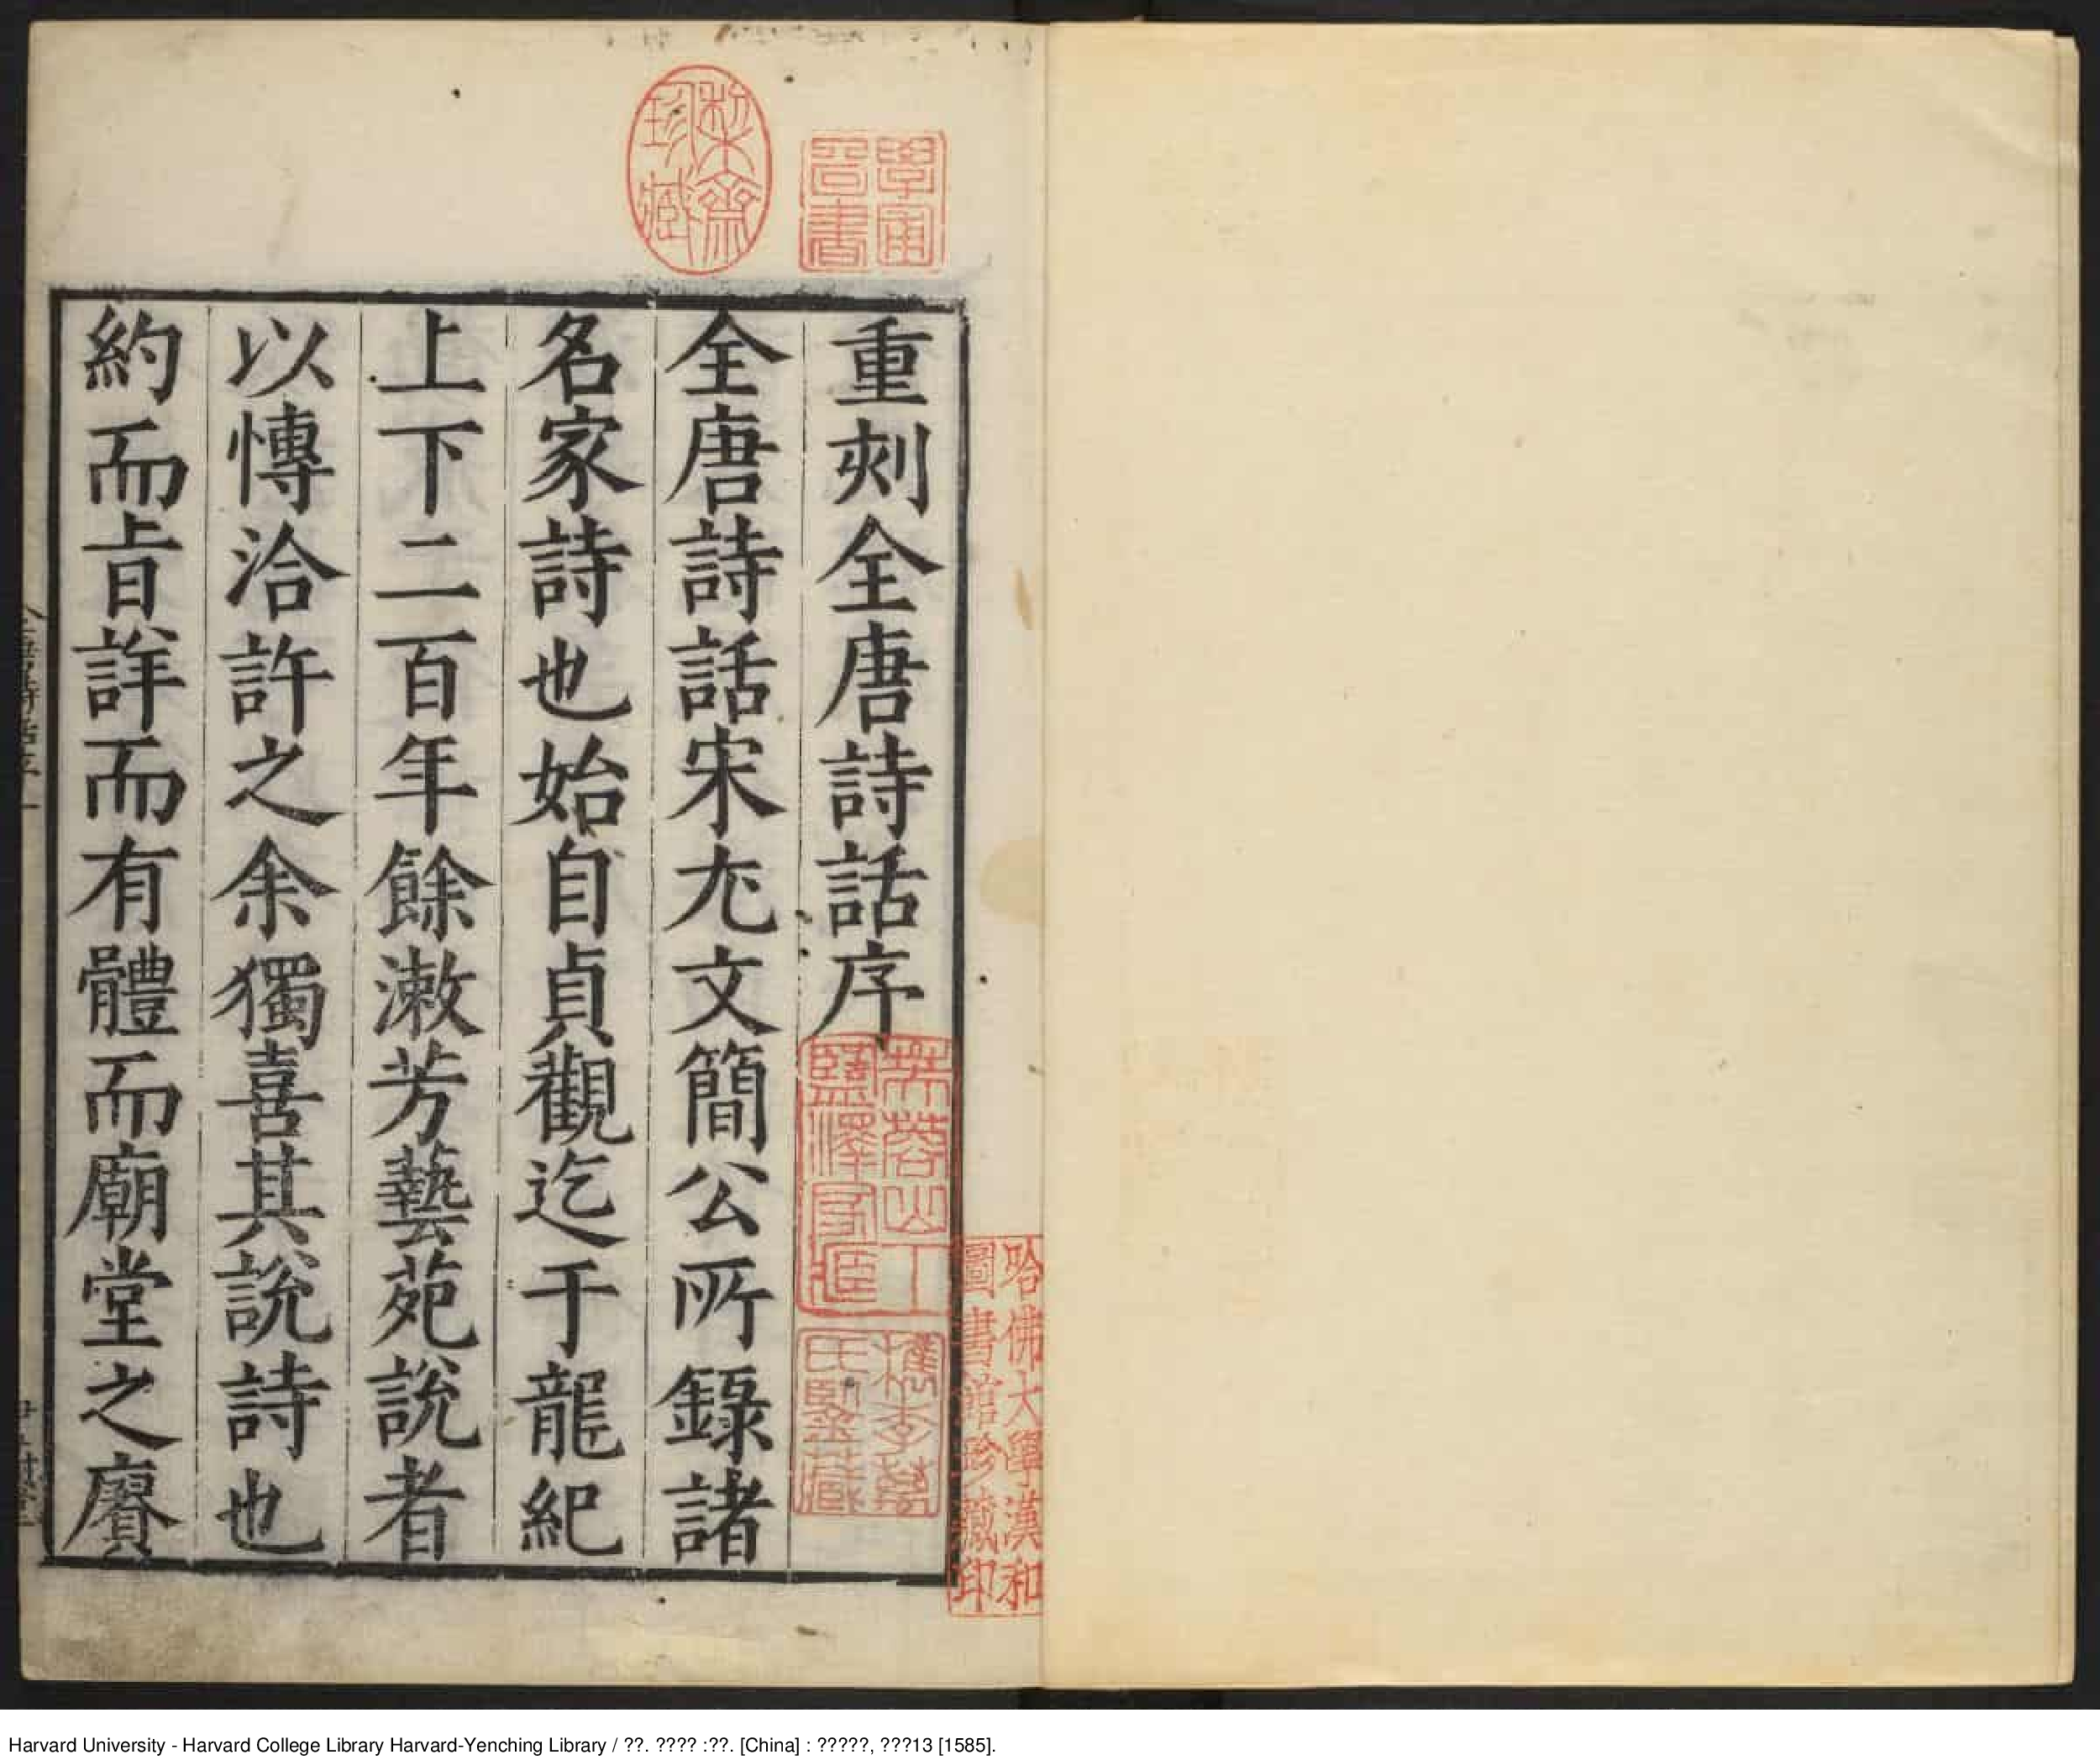 重刻全唐詩話序
全唐詩話宋尤文簡公所錄諸
名家詩也始自貞觀迄于龍紀
上下二百年餘漱芳藝苑說者
以慱洽許之余獨喜其說詩也
約而旨詳而有體而廟堂之賡
哈佛大學漢和
圖書館珍藏印
Harvard University - Harvard College Library Harvard-Yenching Library / ??. ???? :??. [China] : ?????, ???13 [1585].